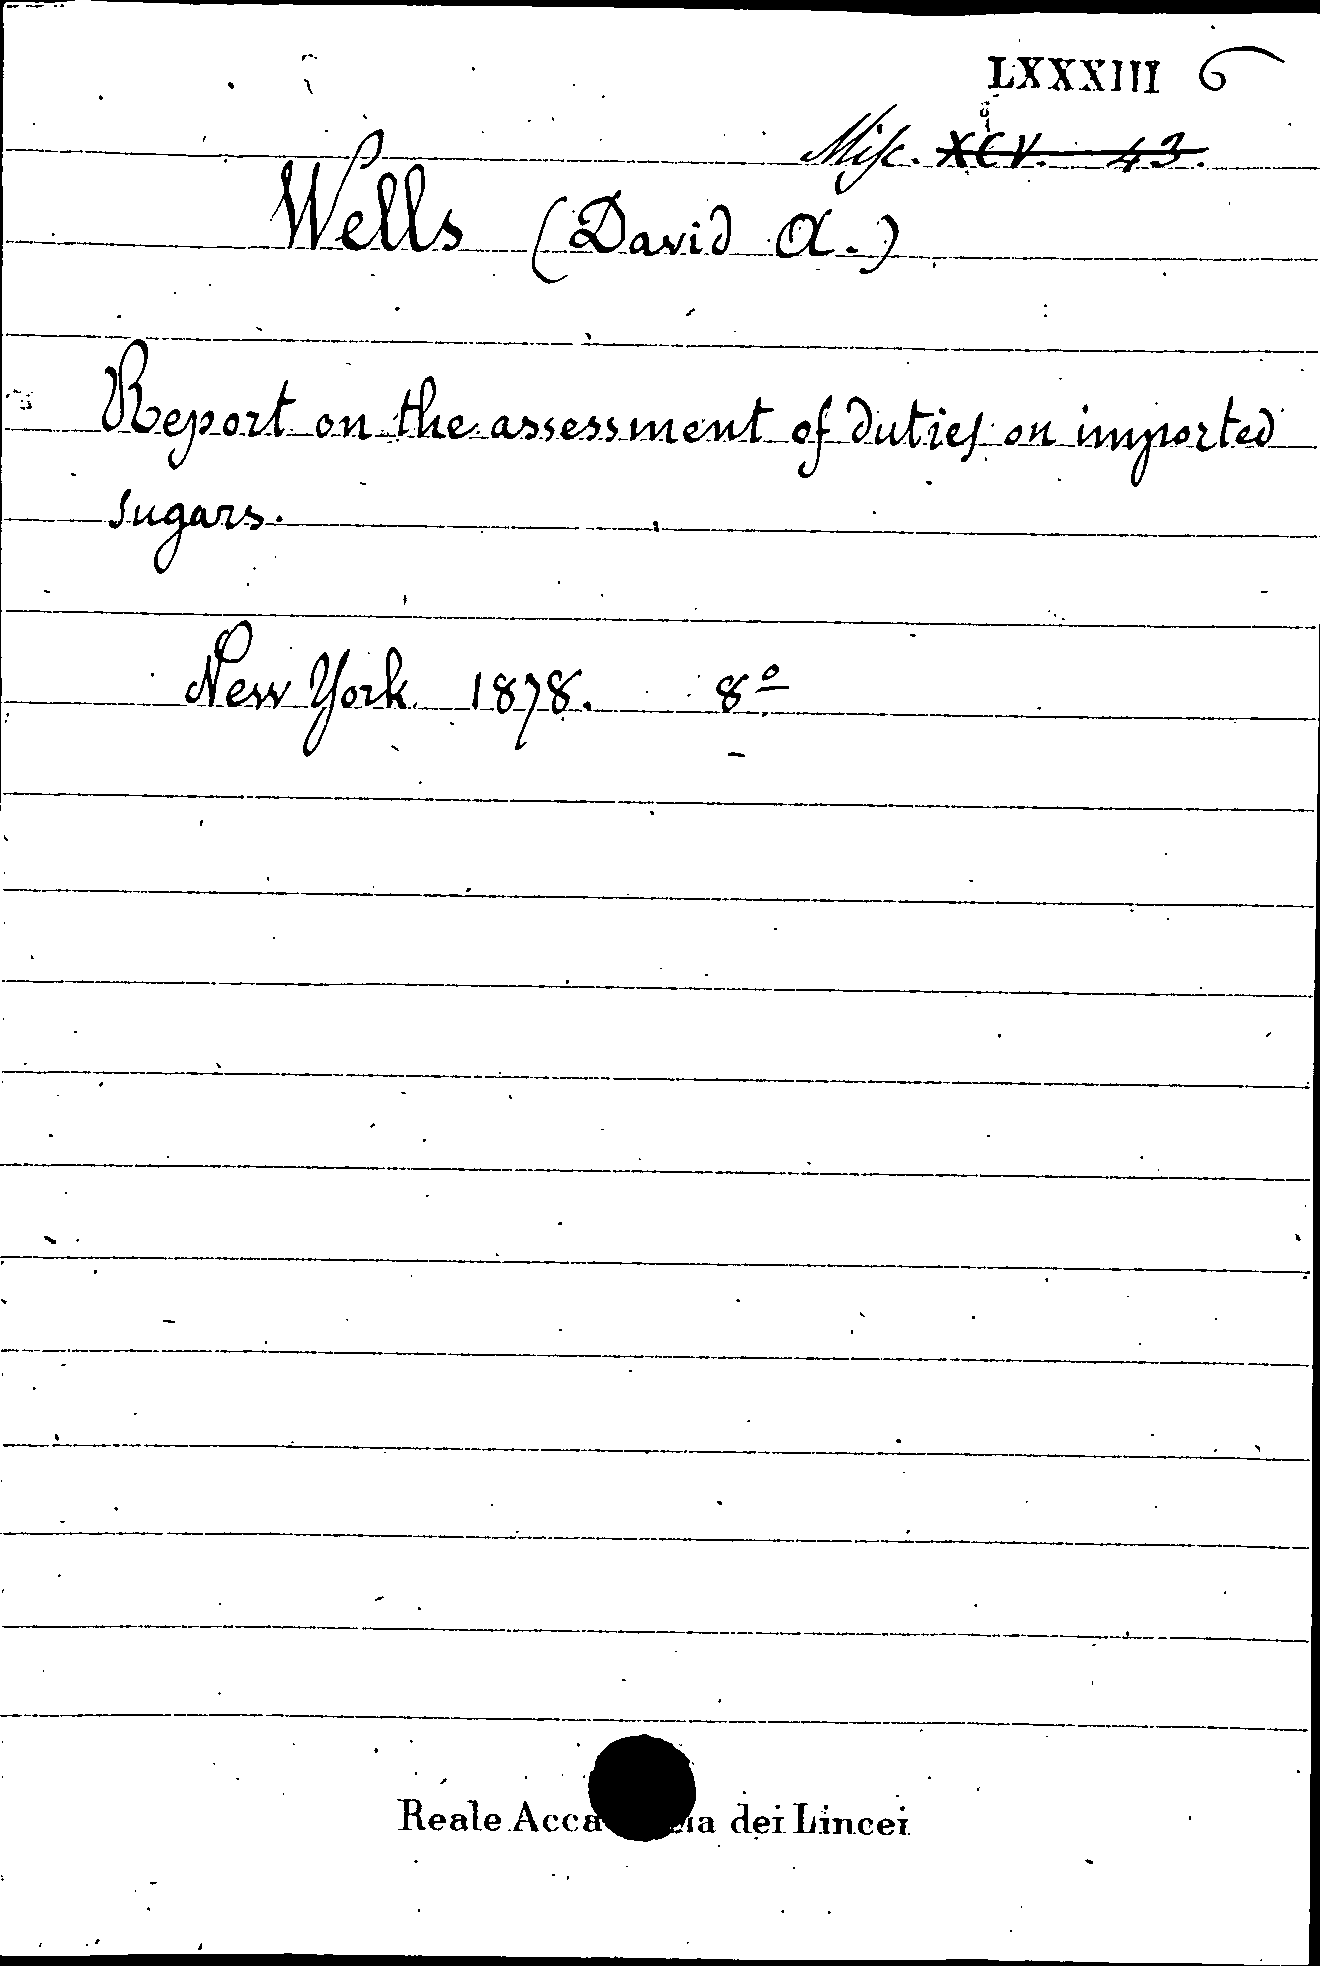 LXXXIII 6
Misc. XCV. 43.
Wells (David A.)
Report on the assessment of duties on imported
sugars.
New York 1878. 8º
Reale Acca ia dei Lincei